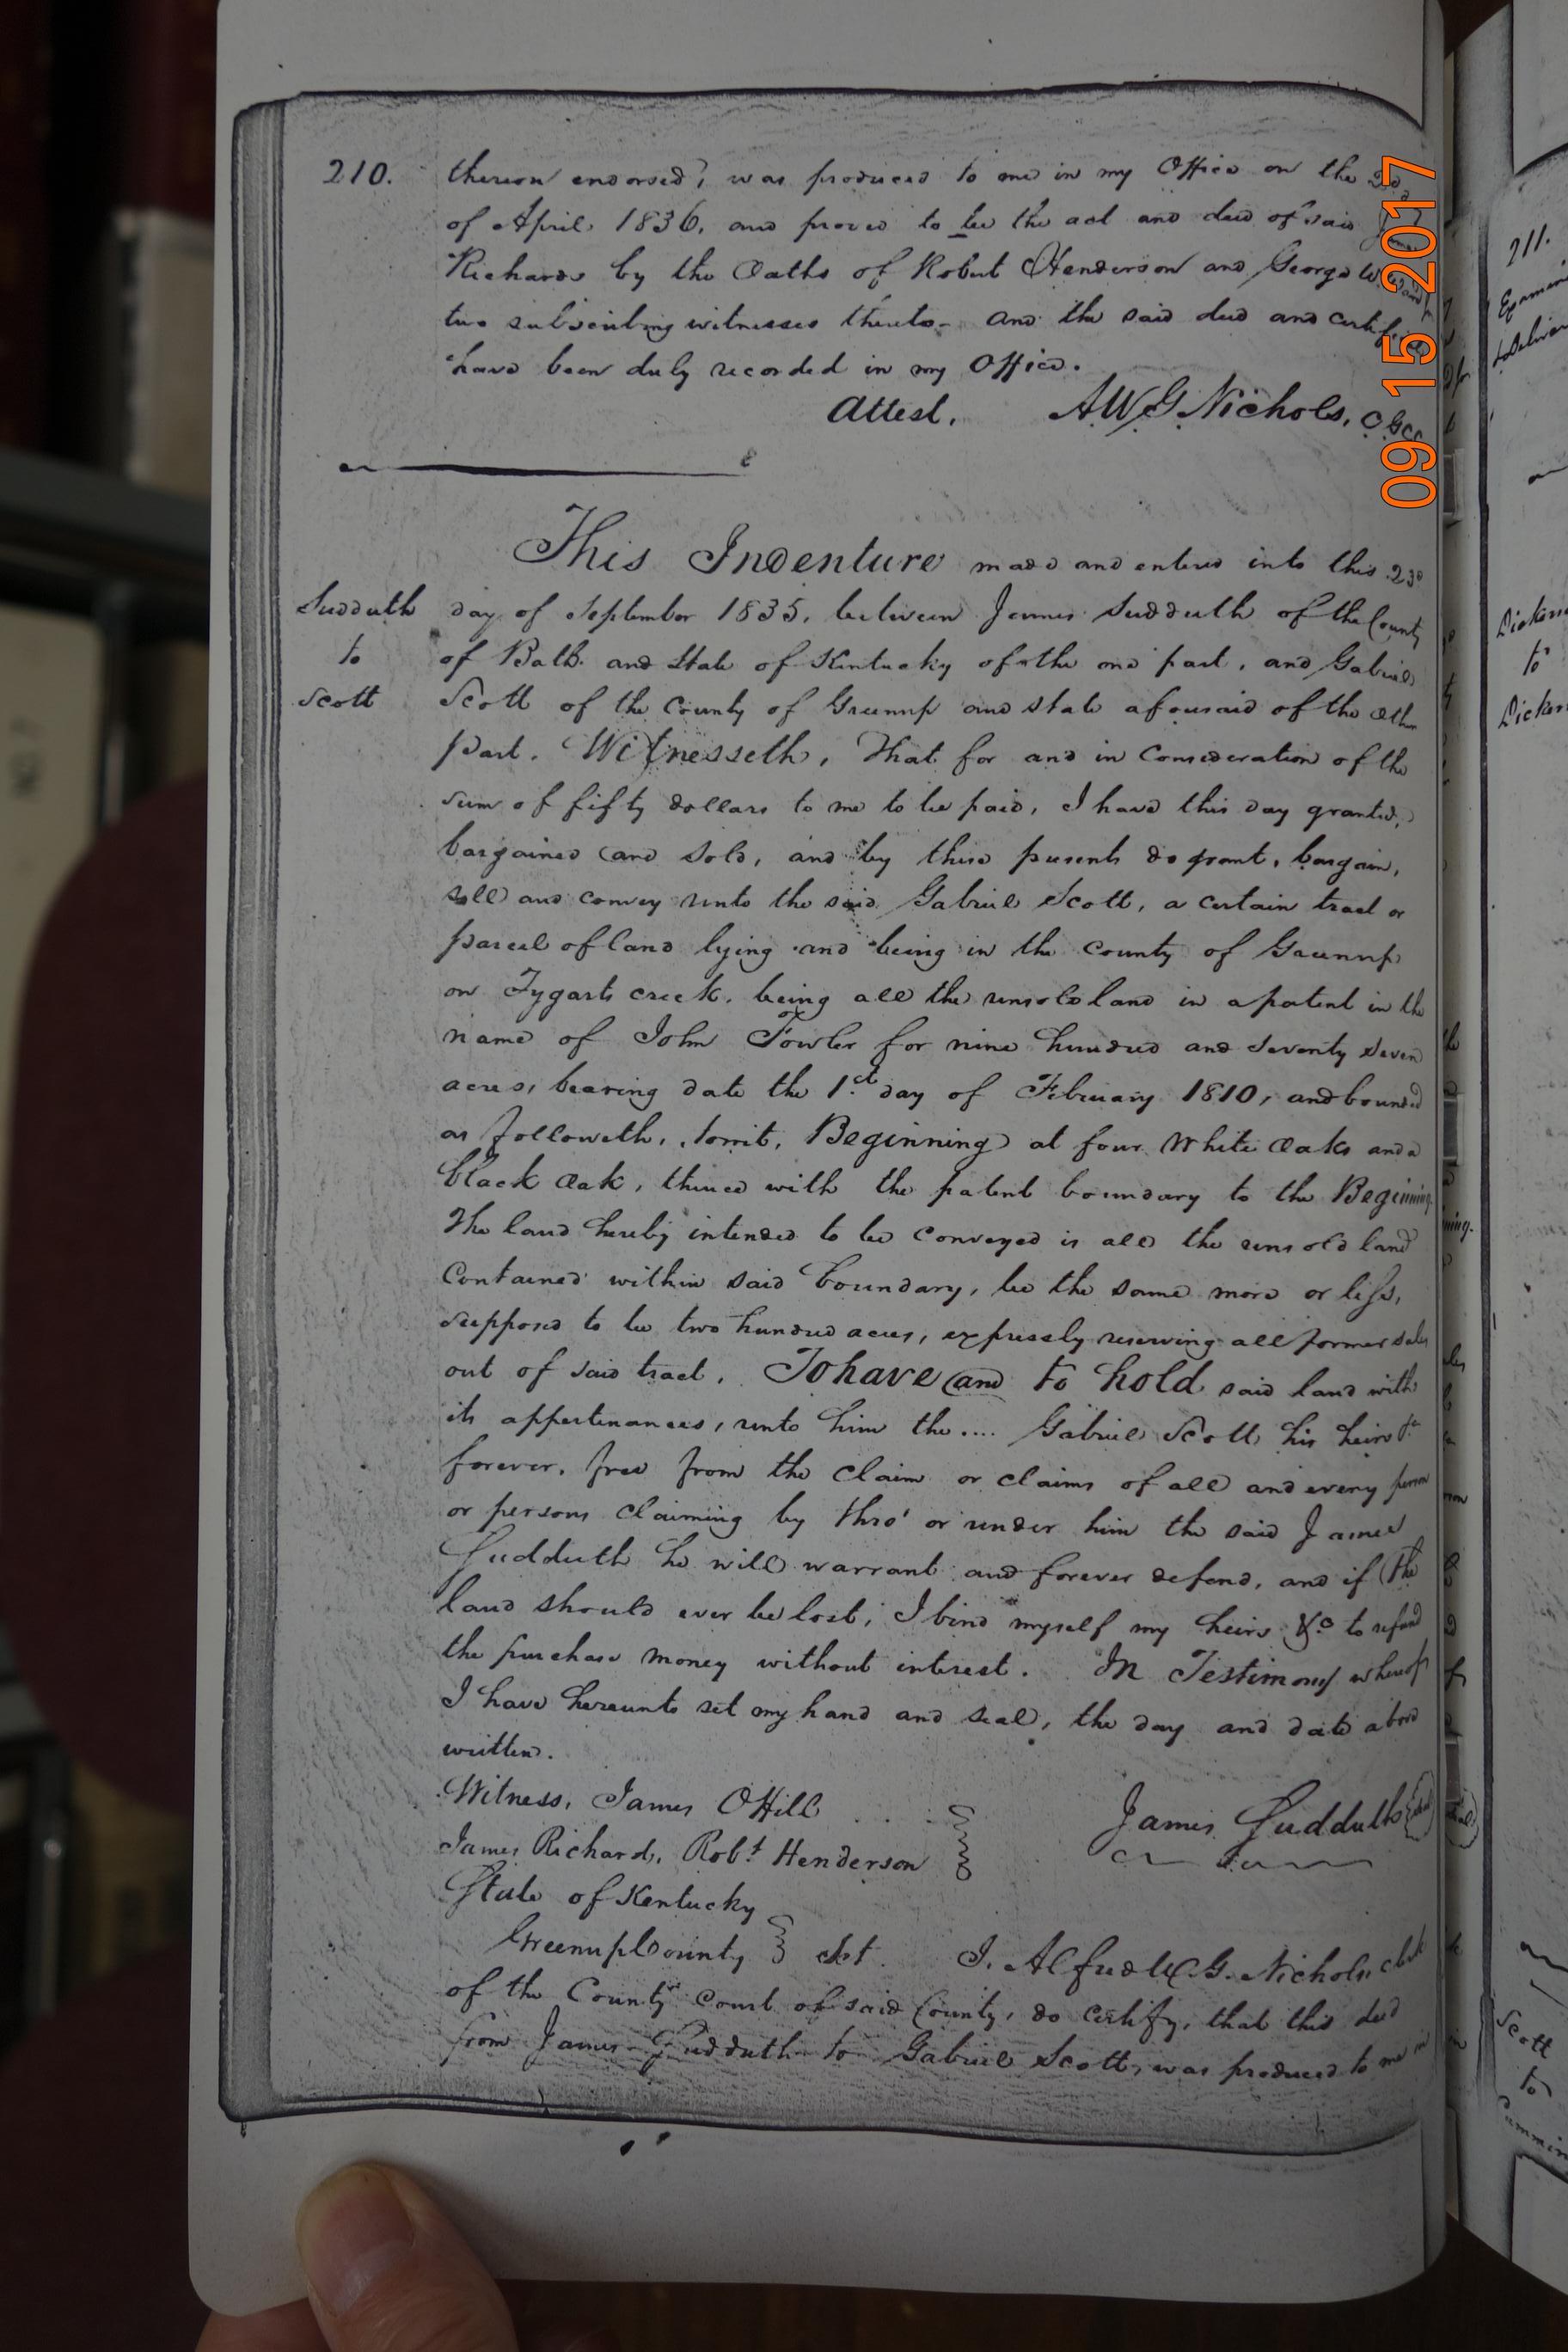 210.
thereon endorsed, was produced to me in my Office on the
of April 1836, and proved to be the act and deed of said
Richards by the Oaths of Robert Henderson and George W.
two subscribing witnesses thereto - and the said deed and certificate
have been duly recorded in my Office.
Attest. A.W.G. Nichols,
This Indenture made and entered into this 23d
Sudduth to Scott
day of September 1835, between James Sudduth of the County
of Bath and State of Kentucky of the one part, and Gabriel
Scott of the County of Greenup and state aforesaid of the other
part. Witnesseth, That for and in consideration of the
sum of fifty dollars to me to be paid, I have this day granted,
bargained and sold, and by these presents do grant, bargain,
sell and convey unto the said Gabriel Scott, a certain tract or
parcel of land lying and being in the county of Greenup
on Tygarts creek, being all the unsold land in a patent in the
name of John Fowler for nine hundred and seventy seven
acres, bearing date the 1st day of February 1810, and bounded
as followeth, towit, Beginning at four White Oaks and a
black Oak, thence with the patent boundary to the Beginning.
The land hereby intended to be conveyed is all the unsold land
Contained within said boundary, be the same more or less,
supposed to be two hundred acres, expressly reserving all former sales
out of said tract. To have and to hold said land with
its appertinances, unto him the .... Gabriel Scott his heirs &c
forever, free from the claim or claims of all and every person
or persons claiming by thro' or under him the said James
Sudduth he will warrant and forever defend, and if the
land should ever be lost, I bind myself my heirs &c to refund
the purchase money without interest. In Testimony whereof
I have hereunto set my hand and seal, the day and date above
written.
Witness, James O Hill
James Sudduth (seal)
James Richard, Robt Henderson
State of Kentucky
Greenup County Sct. I, Alfred W.G. Nichols clerk
of the County Court of said County, do certify, that this deed
from James Sudduth to Gabriel Scott, was produced to me in
211.
to
Scott
to
09 15 2017